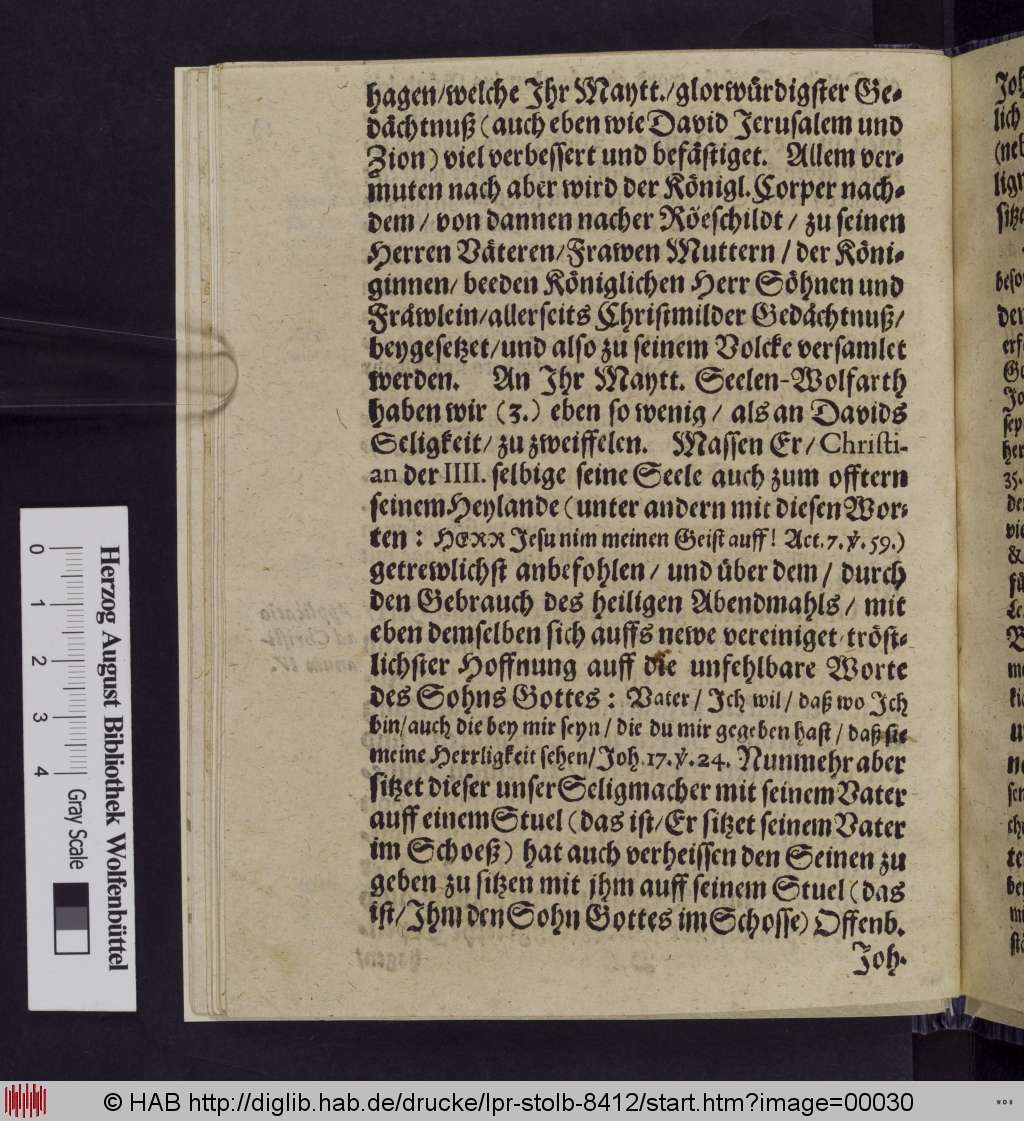 hagen/welche Ihr Maytt./glorwürdigster Ge-
dächtnuß (auch eben wie David Jerusalem und
Zion) viel verbessert und befästiget. Allem ver-
muten nach aber wird der Königl. Corper nach-
dem / von dannen nacher Röeschildt / zu seinen
Herren Väteren/Frawen Muttern / der Köni-
ginnen/ beeden Königlichen Herr Söhnen und
Fräwlein/allerseits Christmilder Gedächtnuß/
beygesetzet/und also zu seinem Volcke versamlet
werden. An Ihr Maytt. Seelen-Wolfarth
haben wir (3.) eben so wenig / als an Davids
Seligkeit/ zu zweiffelen. Massen Er/ Christi-
an der IIII. selbige seine Seele auch zum offtern
seinem Heylande (unter andern mit diesen Wor-
ten : HERR Jesu nim meinen Geist auff! Act. 7. ℣. 59.)
getrewlichst anbefohlen / und über dem / durch
den Gebrauch des heiligen Abendmahls / mit
eben demselben sich auffs newe vereiniget tröst-
lichster Hoffnung auff die unfehlbare Worte
des Sohns Gottes : Vater / Ich wil / daß wo Ich
bin/auch die bey mir seyn / die du mir gegeben hast / daß sie
meine Herrligkeit sehen/Joh. 17. ℣. 24. Nunmehr aber
sitzet dieser unser Seligmacher mit seinem Vater
auff einem Stuel (das ist/Er sitzet seinem Vater
im Schoeß) hat auch verheissen den Seinen zu
geben zu sitzen mit jhm auff seinem Stuel (das
ist/Ihm den Sohn Gottes im Schosse) Offenb.
Joh.
Herzog August Bibliothek Wolfenbüttel
0 1 2 3 4 Gray Scale
© HAB http://diglib.hab.de/drucke/lpr-stolb-8412/start.htm?image=00030